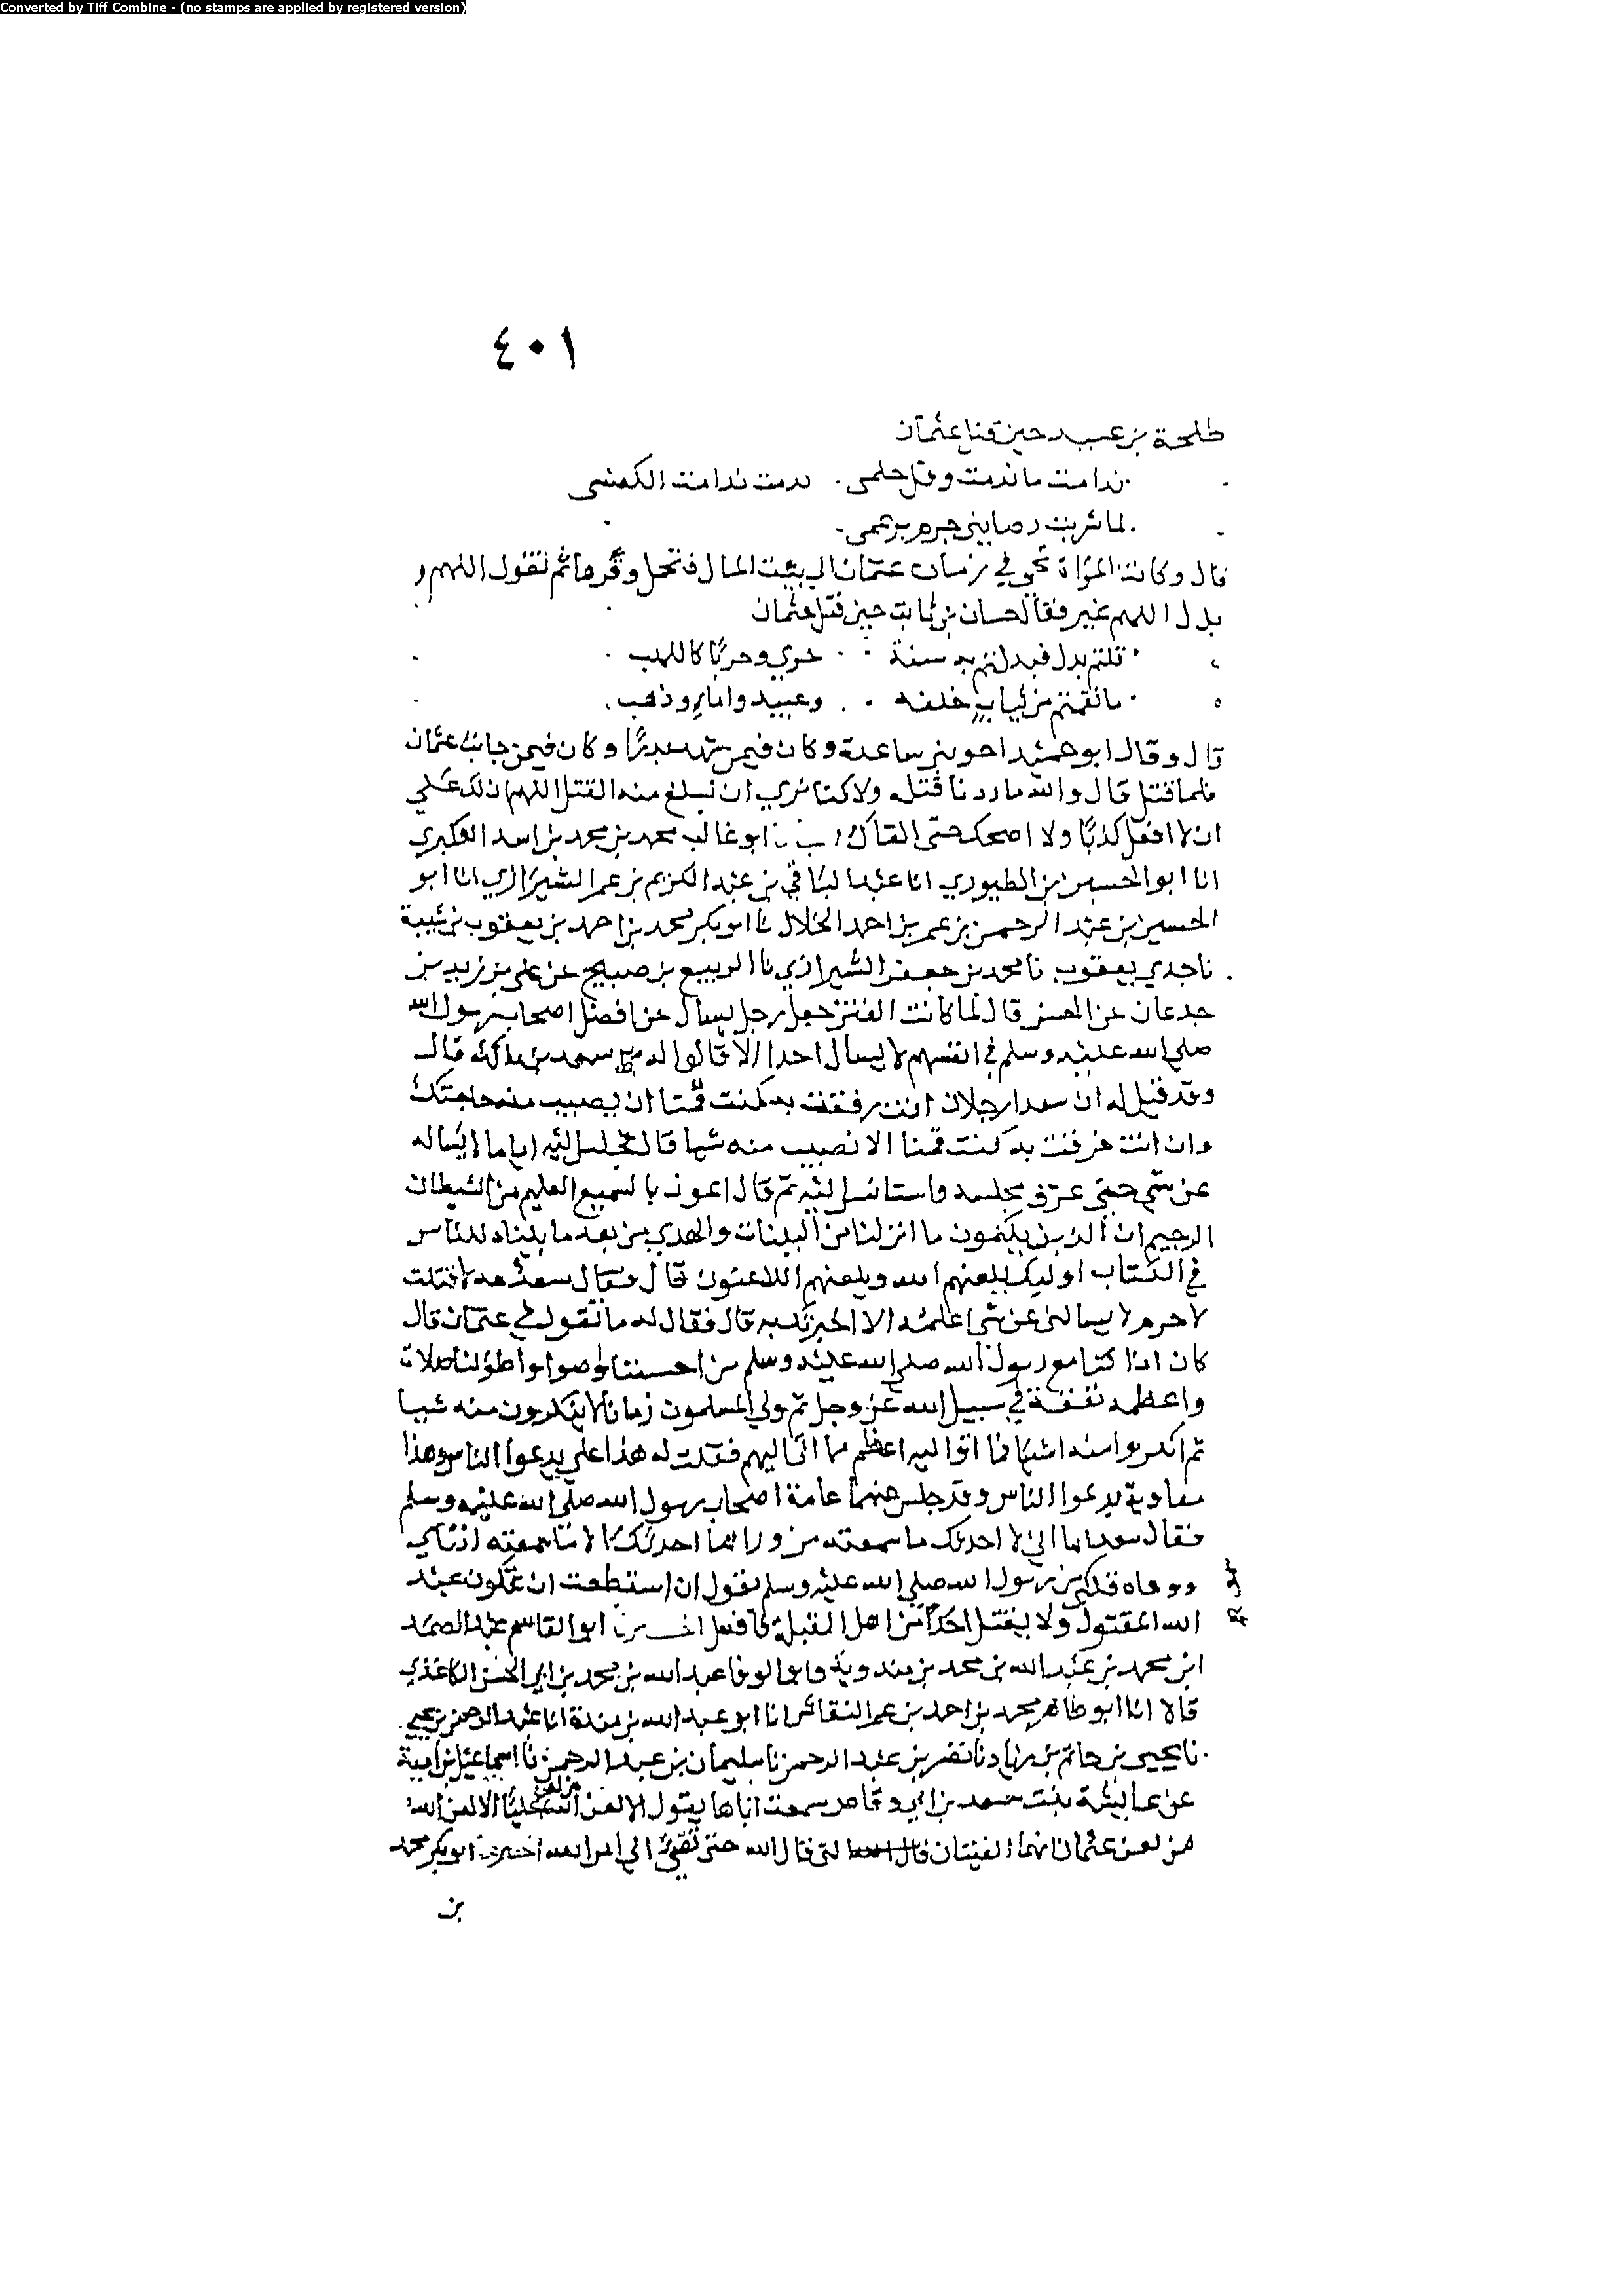 Converted by Tiff Combine - (no stamps are applied by registered version)
٤٠١
طلحة بن عبيد حين قتل عثمان
ندامت ما ندمت وقل حلمى ندمت ندامت الكسعى
لما شربت رضا بنى جرم برغمى
قال وكانت المرأة تجي في زمان عثمان الى بيت المال فتحمل وقرها ثم تقول اللهم
بدل اللهم غير فقال حسان بن ثابت حين قتل عثمان
قلتم بدل فبدلتم به سنة حرى وحربًا كاللهب
ما نقمتم من ثياب خلفه وعبيد واماء وذهب
قال وقال ابو حميد اخو بنى ساعدة وكان فيمن شهد بدرًا وكان فيمن جانب عثمان
فلما قتل قال والله ما اردنا قتله ولا كنا نرى ان يبلغ منه القتل اللهم ان لك على
ان لا افعل كذا ولا اضحك حتى القاك ابو غالب محمد بن محمد بن اسد العكبري
انا ابو الحسين بن الطيوري انا عبد الباقي بن عبد الكريم بن عمر الشيرازي انا ابو
الحسين بن عبد الرحمن بن عمر بن احمد الخلال نا ابو بكر محمد بن احمد بن يعقوب بن شيبة
نا جدي يعقوب نا محمد بن جعفر الشيرازي نا الربيع بن صبيح عن على بن زيد بن
جدعان عن الحسن قال لما كانت الفتن جعل رجل يسال عن افضل اصحاب رسول الله
صلى الله عليه وسلم في انفسهم لا يسال احدا الا قالوا له سعد بن مالك قال
وقد قيل له ان سعدا رجل ان انت رفقت به كنت قمنا ان تصيب منه حاجتك
وان انت خرقت به كنت قمنا الا تصيب منه شيا قال فجلس اليه اياما لا يساله
عن شي حتى عرف مجلسه واستانس اليه ثم قال اعوذ بالسميع العليم من الشيطان
الرجيم ان الذين يكتمون ما انزلنا من البينات والهدى من بعد ما بيناه للناس
في الكتاب اوليك يلعنهم الله ويلعنهم اللاعنون قال فقال سعد
لا جرم لا يسالنى عن شى اعلمه الا اخبرتك به قال فقال له ما تقول في عثمان قال
كان اذا كنا مع رسول الله صلى الله عليه وسلم من احسننا وضوا واطولنا صلاة
واعظمه نفقة في سبيل الله عز وجل ثم ولي المسلمون زمانا لا ينكرون منه شيا
ثم انكروا منه اشيا فما اتوا اليه اعظم مما اتى اليهم فقلت له هذا على يدعوا الناس وهذا
معاوية يدعوا الناس وقد جلس عنهما عامة اصحاب رسول الله صلى الله عليه وسلم
فقال سعد اما اني لا احدثك ما سمعته من ورا انما احدثك الا ما سمعته اذناي
ووعاه قلبي من رسول الله صلى الله عليه وسلم يقول ان استطعت ان تكون عبد
الله المقتول ولا يقتل احدًا من اهل القبلة فافعل ابو القاسم عبد الصمد
ابن محمد بن عبد الله بن محمد بن مندوية وابو الوفا عبد الله بن محمد بن ابي الحسن الكاغذي
قالا انا ابو طاهر محمد بن احمد بن عمر النقاش انا ابو عبد الله بن مندة انا عبد الرحمن بن يحيى
نا يحيى بن حاتم بن زياد نا نضر بن عبد الرحمن نا سليمان بن عبد الرحمن نا اسماعيل بن ابية
عن عايشة بنت سعد بن ابي وقاص سمعت اباها يقول الا لعن الله من لعن عليًا الا لعن الله
من لعن عثمان انهما الفيتان التى قال الله حتى تفي الى امر الله ابو بكر محمد
بن